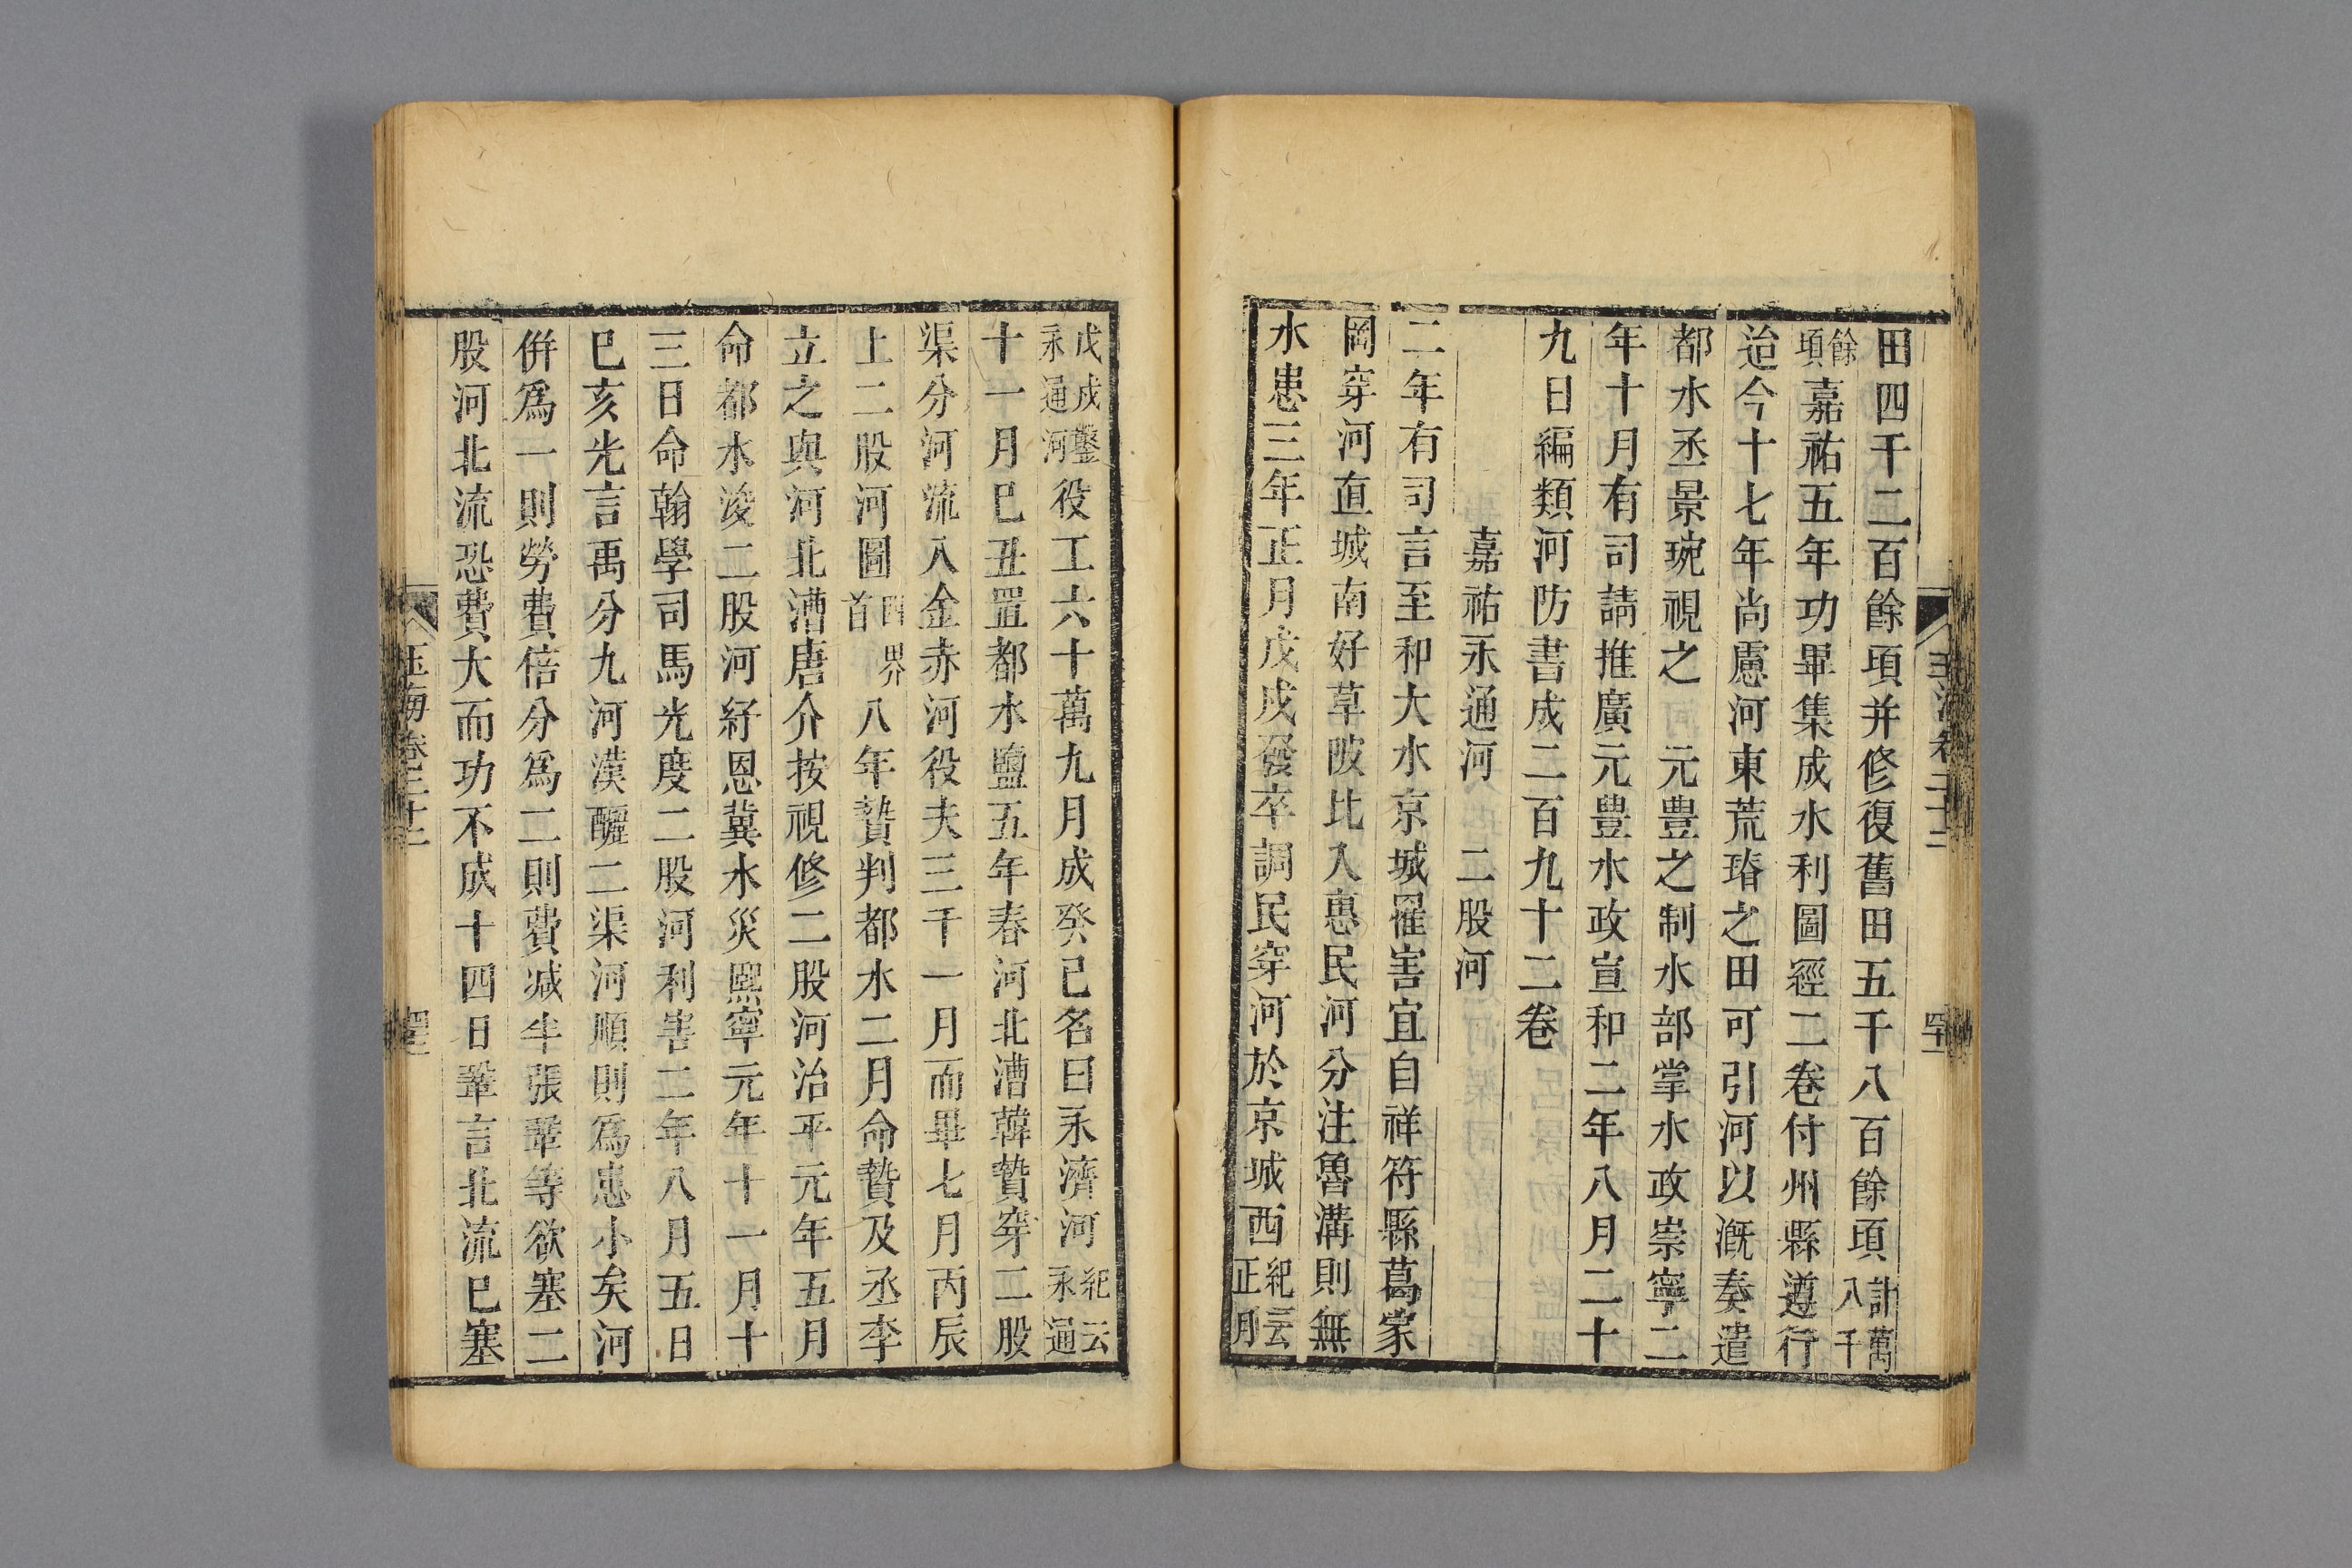 田四千二百餘項并修復舊田五千八百餘項計萬八千
餘項嘉祐五年功畢集成水利圖經二卷付州縣遵行
迨今十七年尚慮河東荒瘠之田可引河以漑奏遣
都水丞景琬視之 元豊之制水部掌水政崇寧二
年十月有司請推廣元豊水政宣和二年八月二十
九日編類河防書成二百九十二卷
嘉祐永通河 二股河
二年有司言至和大水京城罹害宜自祥符縣葛家
岡穿河直城南好草陂北入惠民河分注魯溝則無
水患三年正月戊戌發卒調民穿河於京城西紀云正月
戊戌鑿永通河役工六十萬九月成癸已名曰永濟河紀云永通
十一月巳丑置都水監五年春河北漕韓贄穿二股
渠分河流入金赤河役夫三千一月而畢七月丙辰
上二股河圖四界首八年贄判都水二月命贄及丞李
立之與河北漕唐介按視修二股河治平元年五月
命都水浚二股河紓恩冀水災熙寧元年十一月十
三日命翰學司馬光度二股河利害二年八月五日
巳亥光言禹分九河漢釃二渠河順則爲患小矣河
併爲一則勞費倍分爲二則費减半張鞏等欲塞二
股河北流恐費大而功不成十四日鞏言北流巳塞
玉海卷二十二